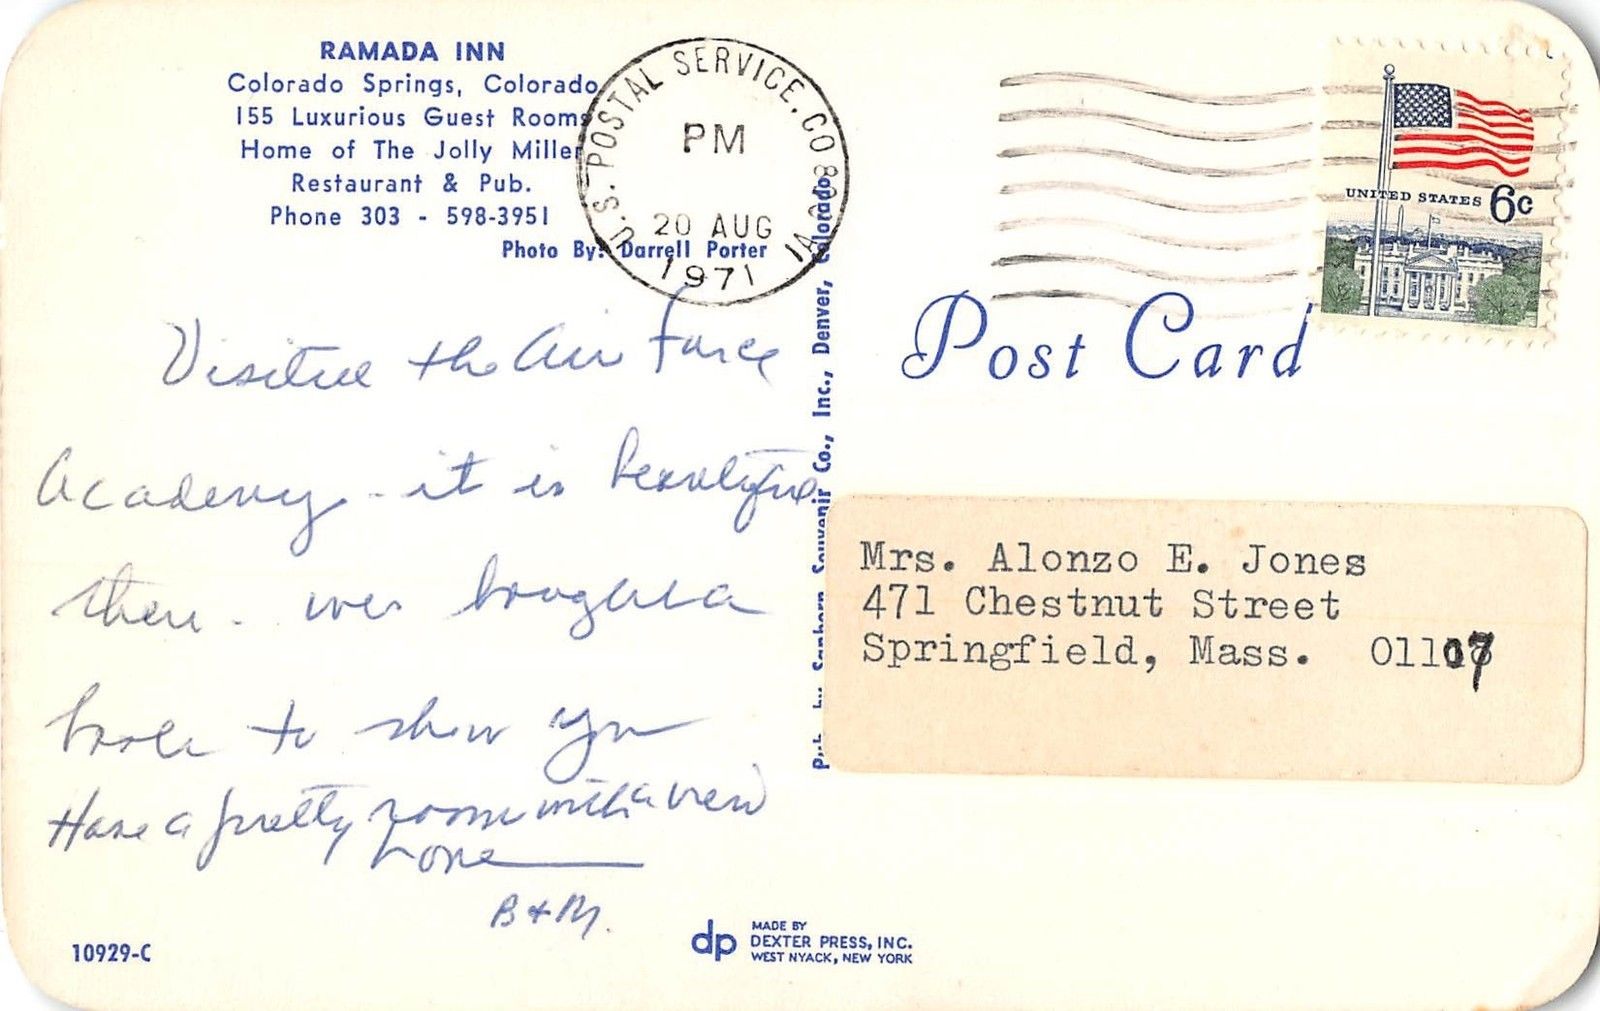 RAMADA INN
Colorado Springs, Colorado
155 Luxurious Guest Rooms
Home of The Jolly Miller
Restaurant & Pub.
Phone 303 - 598-3951
Photo By: Darrell Porter
U.S. POSTAL SERVICE, CO
PM
20 AUG
1971
UNITED STATES 6c
Post Card
Visited the Air Force
Academy - it is beautiful
there. we bought a
book to show you
Have a pretty room with a view
Love
B & M.
Pub. by Sanborn Souvenir Co., Inc., Denver, Colorado
Mrs. Alonzo E. Jones
471 Chestnut Street
Springfield, Mass. 01107
10929-C
dp
MADE BY
DEXTER PRESS, INC.
WEST NYACK, NEW YORK